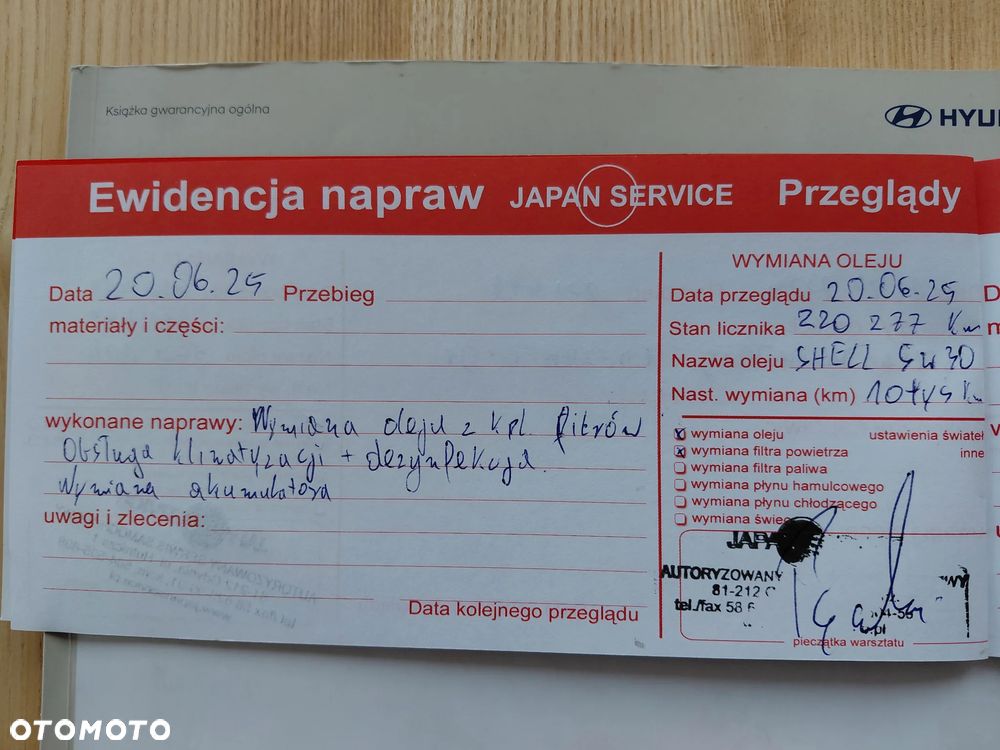 Książka gwarancyjna ogólna
HYU
Ewidencja napraw JAPAN SERVICE Przeglądy
Data 20.06.25 Przebieg
materiały i części:
wykonane naprawy: Wymiana oleju z kpl filtrów
Obsługa klimatyzacji + dezynfekcja.
Wymiana akumulatora
uwagi i zlecenia:
Data kolejnego przeglądu
WYMIANA OLEJU
Data przeglądu 20.06.25
Stan licznika 220 277 Km
Nazwa oleju SHELL 5w30
Nast. wymiana (km) 10tyś Km
wymiana oleju ustawienia świateł
wymiana filtra powietrza inne
wymiana filtra paliwa
wymiana płynu hamulcowego
wymiana płynu chłodzącego
wymiana świec
JAPA
AUTORYZOWANY
81-212 G
tel./fax 58 6
pieczątka warsztatu
OTOMOTO